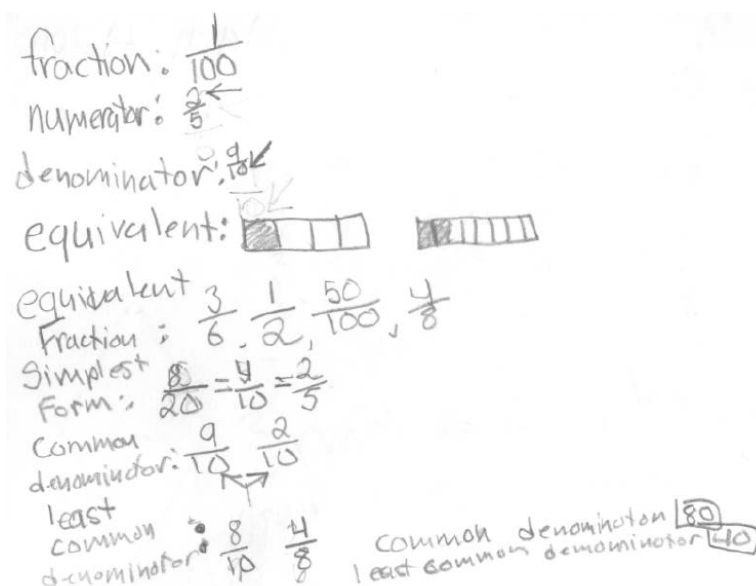 fraction: 1/100
numerator: 2/5 ←
denominator: 9/10
equivalent:
equivalent
Fraction: 3/6, 1/2, 50/100, 4/8
Simplest
Form: 8/20 = 4/10 = 2/5
Common
denominator: 9/10 2/10
least
common
denominator: 8/10 4/8
common denominator 80
least common demominator 40